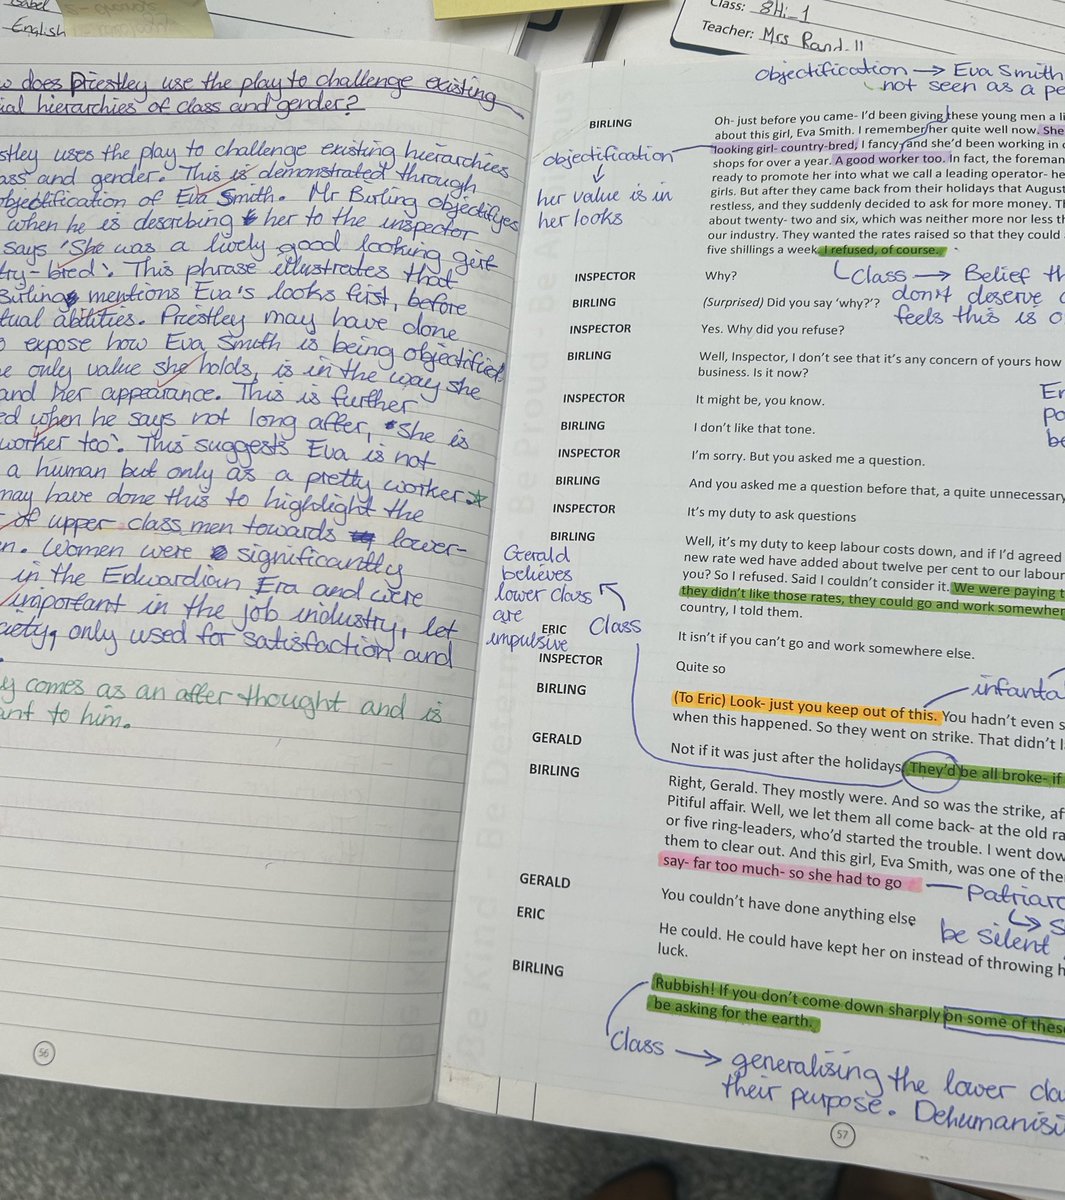 English
Class: 8Hi_1
Teacher: Mrs Randill
does Priestley use the play to challenge existing
hierarchies of class and gender?
uses the play to challenge existing hierarchies
and gender. This is demonstrated through
of Eva Smith. Mr Birling objectifyes
when he is describing her to the inspector
says 'She was a lively good looking girl
bred'. This phrase illustrates that
Birling mentions Eva's looks first, before
abilities. Priestley may have done
expose how Eva Smith is being objectified
only value she holds, is in the way she
and her appearance. This is further
when he says not long after, 'She is
worker too'. This suggests Eva is not
a human but only as a pretty worker.
may have done this to highlight the
of upper class men towards lower-
Women were significantly
in the Edwardian Era and were
important in the job industry, let
only used for satisfaction and
comes as an after thought and is
to him.
56
objectification → Eva Smith
not seen as a
BIRLING Oh- just before you came- I'd been giving these young men a
about this girl, Eva Smith. I remember her quite well now. She
looking girl- country-bred, I fancy- and she'd been working in
shops for over a year. A good worker too. In fact, the foreman
ready to promote her into what we call a leading operator-
girls. But after they came back from their holidays that August
restless, and they suddenly decided to ask for more money. T
about twenty- two and six, which was neither more nor less
our industry. They wanted the rates raised so that they could
five shillings a week. I refused, of course.
objectification
her value is in
her looks
INSPECTOR Why?
Class → Belief
BIRLING (Surprised) Did you say 'why?'?
don't deserve
feels this is
INSPECTOR Yes. Why did you refuse?
BIRLING Well, Inspector, I don't see that it's any concern of yours how
business. Is it now?
INSPECTOR It might be, you know.
BIRLING I don't like that tone.
INSPECTOR I'm sorry. But you asked me a question.
BIRLING And you asked me a question before that, a quite unnecessary
INSPECTOR It's my duty to ask questions
BIRLING Well, it's my duty to keep labour costs down, and if I'd agreed
new rate wed have added about twelve per cent to our labour
you? So I refused. Said I couldn't consider it. We were paying
they didn't like those rates, they could go and work somewher
country, I told them.
Gerald
believes
lower class
are
impulsive
Class
ERIC It isn't if you can't go and work somewhere else.
INSPECTOR Quite so
BIRLING (To Eric) Look- just you keep out of this. You hadn't even
when this happened. So they went on strike. That didn't
GERALD Not if it was just after the holidays. They'd be all broke- if
BIRLING Right, Gerald. They mostly were. And so was the strike,
Pitiful affair. Well, we let them all come back- at the old
or five ring-leaders, who'd started the trouble. I went
them to clear out. And this girl, Eva Smith, was one of
say- far too much- so she had to go
be silent
GERALD You couldn't have done anything else
ERIC He could. He could have kept her on instead of throwing
luck.
BIRLING Rubbish! If you don't come down sharply on some of these
be asking for the earth.
Class → generalising the lower
their purpose.
57